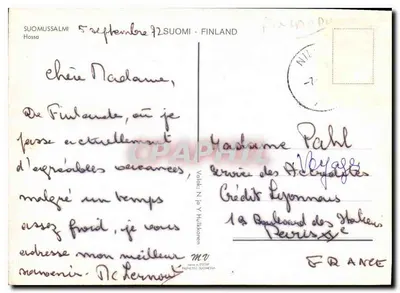 SUOMUSSALMI
Hossa
5 septembre 72
SUOMI - FINLAND
Chère Madame,
De Finlande, où je
passe actuellement
d'agréables vacances,
malgré un temps
assez froid, je vous
adresse mon meilleur
souvenir.
Valok. N. ja Y. Hulkkonen
MV
CPAPHIL
Madame Pahl
Voyages
Service des
Crédit Lyonnais
19 Boulevard des Italiens
Paris
FRANCE